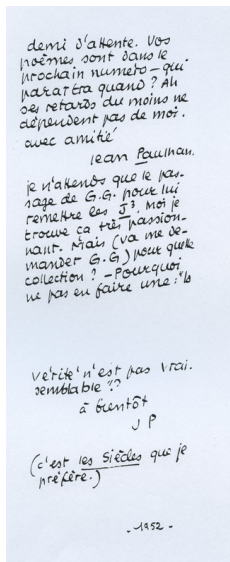 demi d'attente. Vos
poèmes sont dans le
prochain numéro – qui
paraîtra quand ? Ah
ses retards du moins ne
dépendent pas de moi.
avec amitié
Jean Paulhan.
je n'attends que le pas-
sage de G.G. pour lui
remettre les J³. Moi je
trouve ça très passion-
nant. Mais (va me de-
mander G.G.) pour quelle
collection ? – Pourquoi
ne pas en faire une : "la
vérité n'est pas vrai-
semblable" ?
à bientôt
J P
(c'est les Siècles que je
préfère.)
- 1952 -